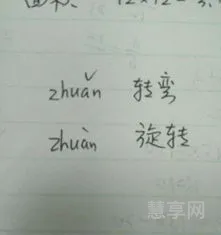 zhuǎn 转弯
zhuàn 旋转
慧享网